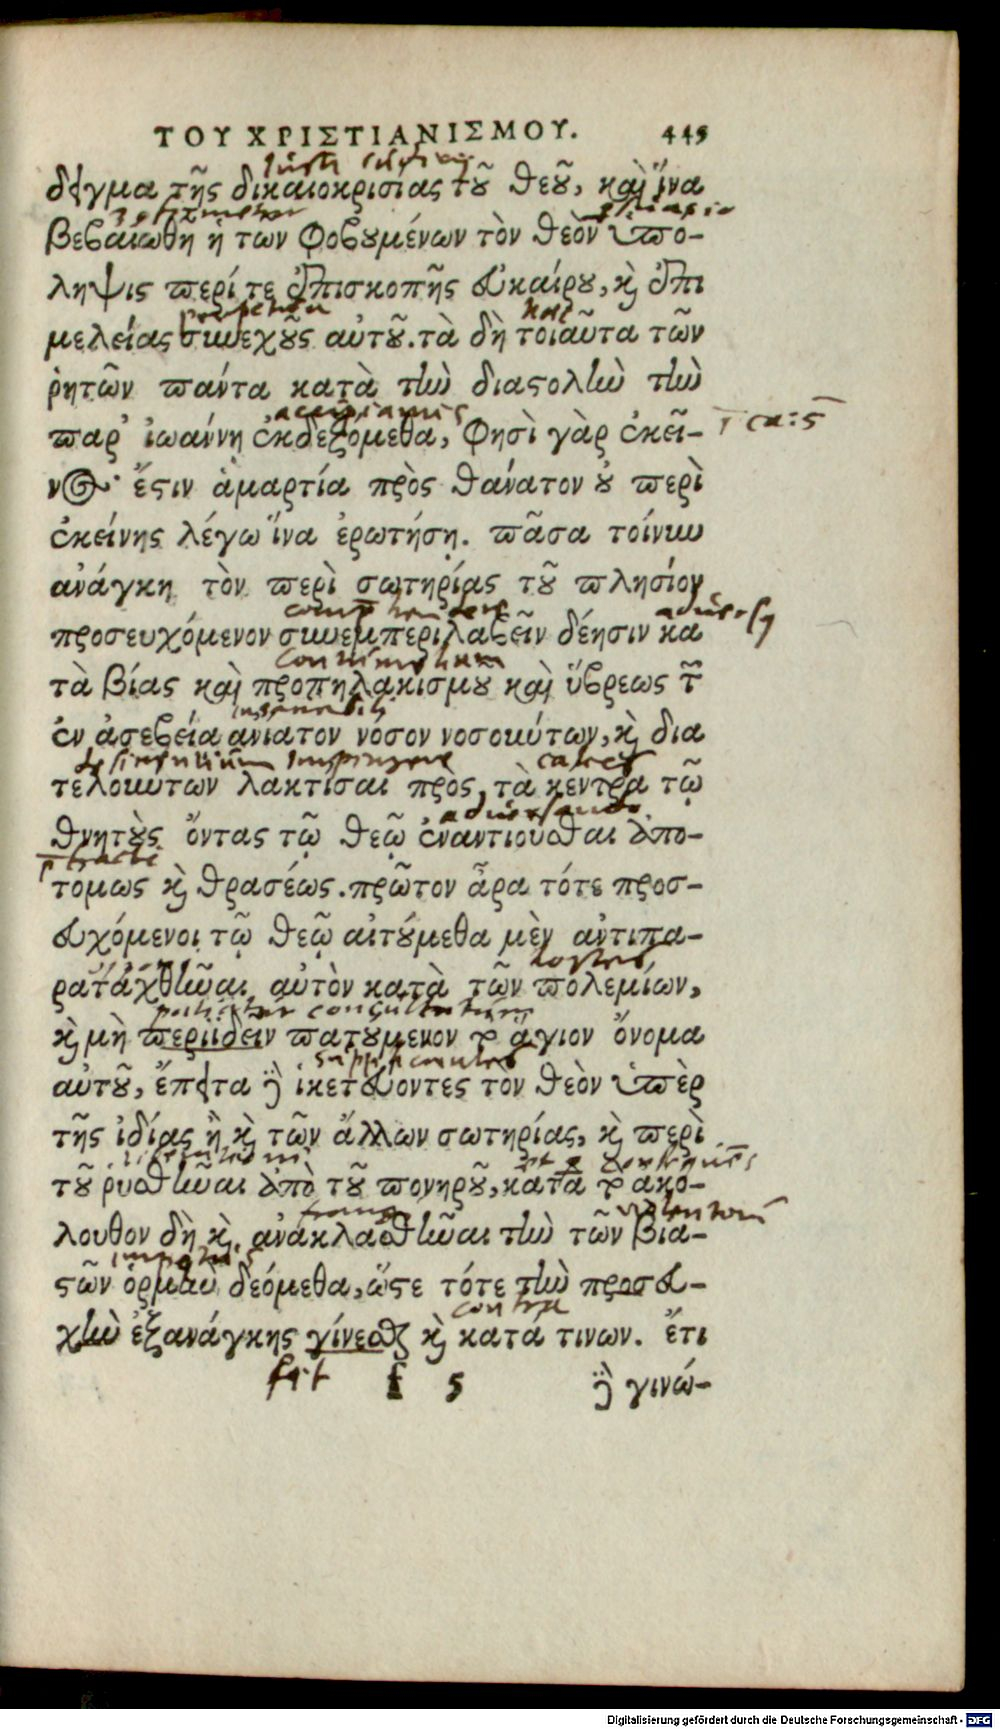 ΤΟΥ ΧΡΙΣΤΙΑΝΙΣΜΟΥ. 449
δειγμα τῆς δικαιοκρισίας τοῦ θεοῦ, καὶ ἵνα
βεβαιωθῇ ἡ των φοβουμένων τὸν θεὸν ὑπο-
ληψις περί τε ἐπισκοπῆς εὐκαίρου, καὶ ἐπι
μελείας συνεχοῦς αὐτοῦ. τὰ δὴ τοιαῦτα τῶν
perpetua
ῥητῶν πάντα κατὰ τὴν διαστολὴν τὴν
accipiamus
παρ' ἰωάννῃ ἐκδεξόμεθα, φησὶ γὰρ ἐκεῖ-
νος· ἔστιν ἁμαρτία πρὸς θάνατον οὐ περὶ
ἐκείνης λέγω ἵνα ἐρωτήσῃ. πᾶσα τοίνυν
ανάγκη τὸν περὶ σωτηρίας τοῦ πλησίον
προσευχόμενον συνεμπεριλαβεῖν δέησιν κα
τὰ βίας καὶ προπηλακισμοῦ καὶ ὕβρεως τῶν
ἐν ἀσεβεία ανιατον νοσον νοσούντων, καὶ δια
τελούντων λακτίσαι πρὸς τὰ κεντρα τῷ
θνητοὺς ὄντας τῷ θεῷ ἐναντιοῦσθαι ἀπο-
τομως καὶ θρασέως. πρῶτον ἆρα τότε προσ-
ευχόμενοι τῷ θεῷ αἰτούμεθα μὲν αντιπα-
hostes
ραταχθῆναι αὐτὸν κατὰ τῶν πολεμίων,
καὶ μὴ περιιδειν πατούμενον τὸ ἅγιον ὄνομα
supplicantes
αὐτοῦ, ἔπειτα δὲ ἱκετεύοντες τὸν θεὸν ὑπὲρ
τῆς ἰδίας ἢ καὶ τῶν ἄλλων σωτηρίας, καὶ περὶ
τοῦ ῥυσθῆναι ἀπὸ τοῦ πονηροῦ, κατὰ τὸ ἀκο-
λουθον δὴ καὶ ἀνακλασθῆναι τὴν τῶν βια-
στῶν ὁρμὴν δεόμεθα, ὥστε τότε τὴν προσευ-
contra
χὴν ἐξανάγκης γίνεσθαι καὶ κατά τινων. ἔτι
fit f 5 δὲ γινώ-
Digitalisierung gefördert durch die Deutsche Forschungsgemeinschaft - DFG